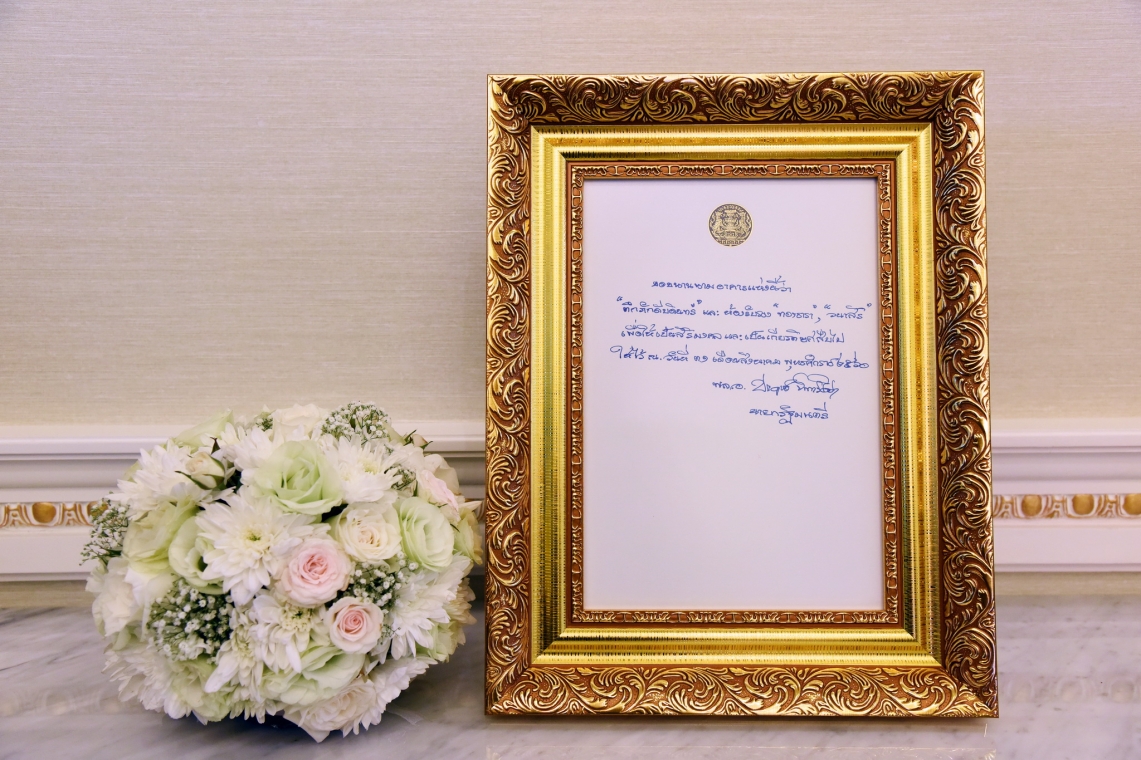 ขอขนานนามอาคารแห่งนี้ว่า
“ตึกภักดีบดินทร์” และ ห้องรับรอง
เพื่อให้เป็นสิริมงคล และ เป็นเกียรติยศสืบไป
ให้ไว้ ณ. วันที่ ๓๑ เดือนสิงหาคม พุทธศักราช ๒๕๖๐
พล.อ.
นายกรัฐมนตรี